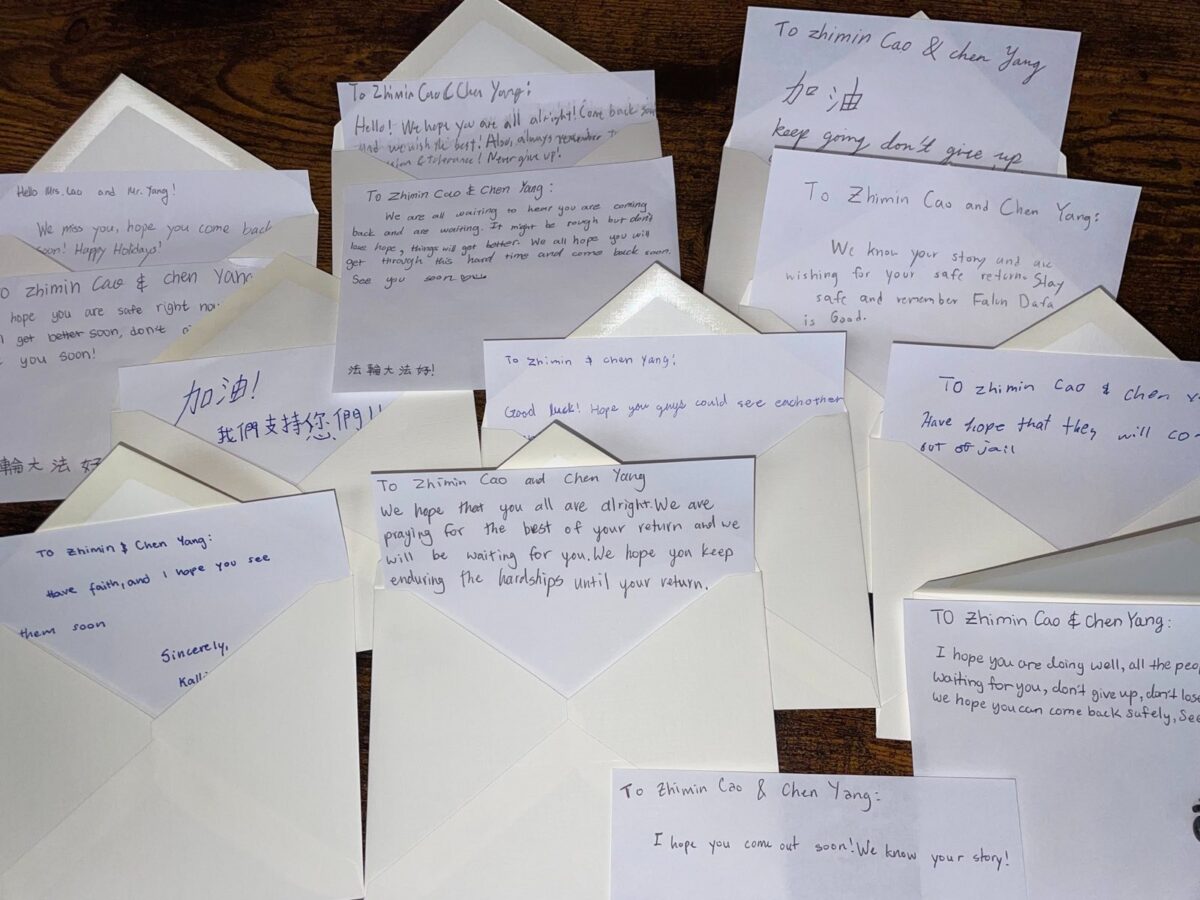 Hello Mrs. Cao and Mr. Yang!
We miss you, hope you come back
soon! Happy Holidays!
To Zhimin Cao & Chen Yang:
Hello! We hope you are all alright! Come back
and we wish the best! Also, always remember
& tolerance! Never give up!
To zhimin Cao & chen Yang
加油
keep going don't give up
To Zhimin Cao & Chen Yang:
We are all waiting to hear you are coming
back and are waiting. It might be rough but don't
lose hope, things will get better. We all hope you will
get through this hard time and come back soon.
See you soon
法輪大法好!
To Zhimin Cao and Chen Yang:
We know your story and are
wishing for your safe return. Stay
safe and remember Falun Dafa
is Good.
To zhimin Cao & chen Yang
hope you are safe right now
get better soon, don't
you soon!
輪大法好
加油!
我們支持您們!!
To zhimin & chen Yang:
Good luck! Hope you guys could see eachother
To zhimin Cao & chen
Have hope that they will
out of jail
To zhimin & Chen Yang:
Have faith, and I hope you see
them soon
Sincerely,
To Zhimin Cao and Chen Yang
We hope that you all are alright. We are
praying for the best of your return and we
will be waiting for you. We hope you keep
enduring the hardships until your return.
To zhimin Cao & Chen Yang:
I hope you are doing well, all the
waiting for you, don't give up, don't lose
we hope you can come back safely, See
To zhimin Cao & Chen Yang:
I hope you come out soon! We know your story!